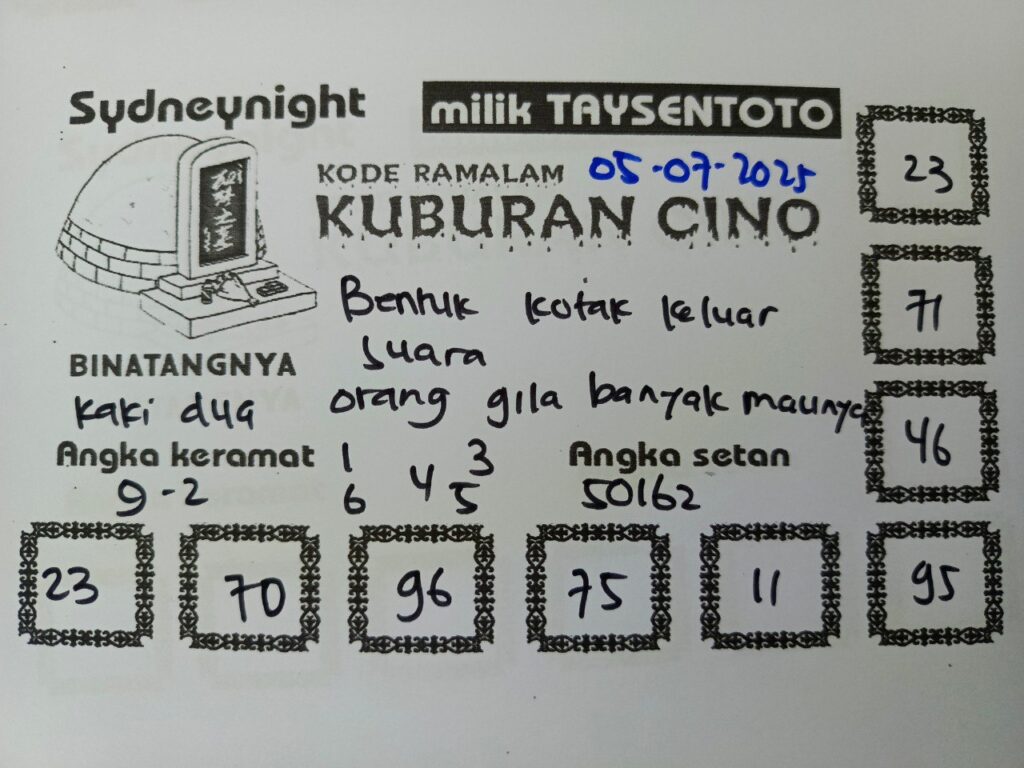 Sydneynight
milik TAYSENTOTO
KODE RAMALAM 05-07-2025
KUBURAN CINO
23
71
46
Bentuk kotak keluar
suara
orang gila banyak maunya
BINATANGNYA
kaki dua
Angka keramat
9-2
1 3
4
6 5
Angka setan
50162
23 70 96 75 11 95